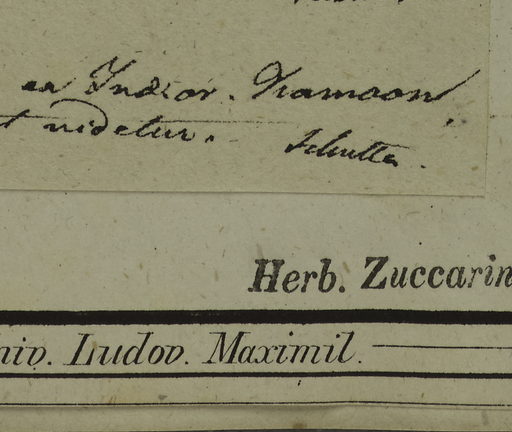 ea Indior. Kamaon
t videtur. Schultes.
Herb. Zuccarin
niv. Ludov. Maximil.